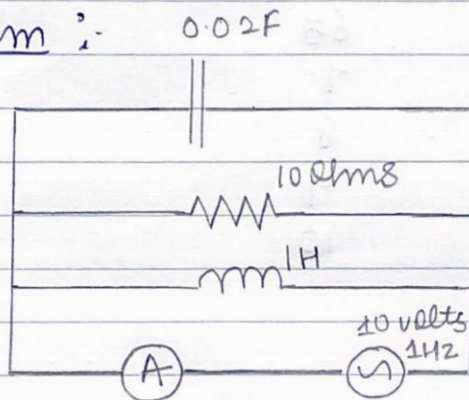 m :-
0.02F
10 Ohms
1H
10 volts
1Hz
A